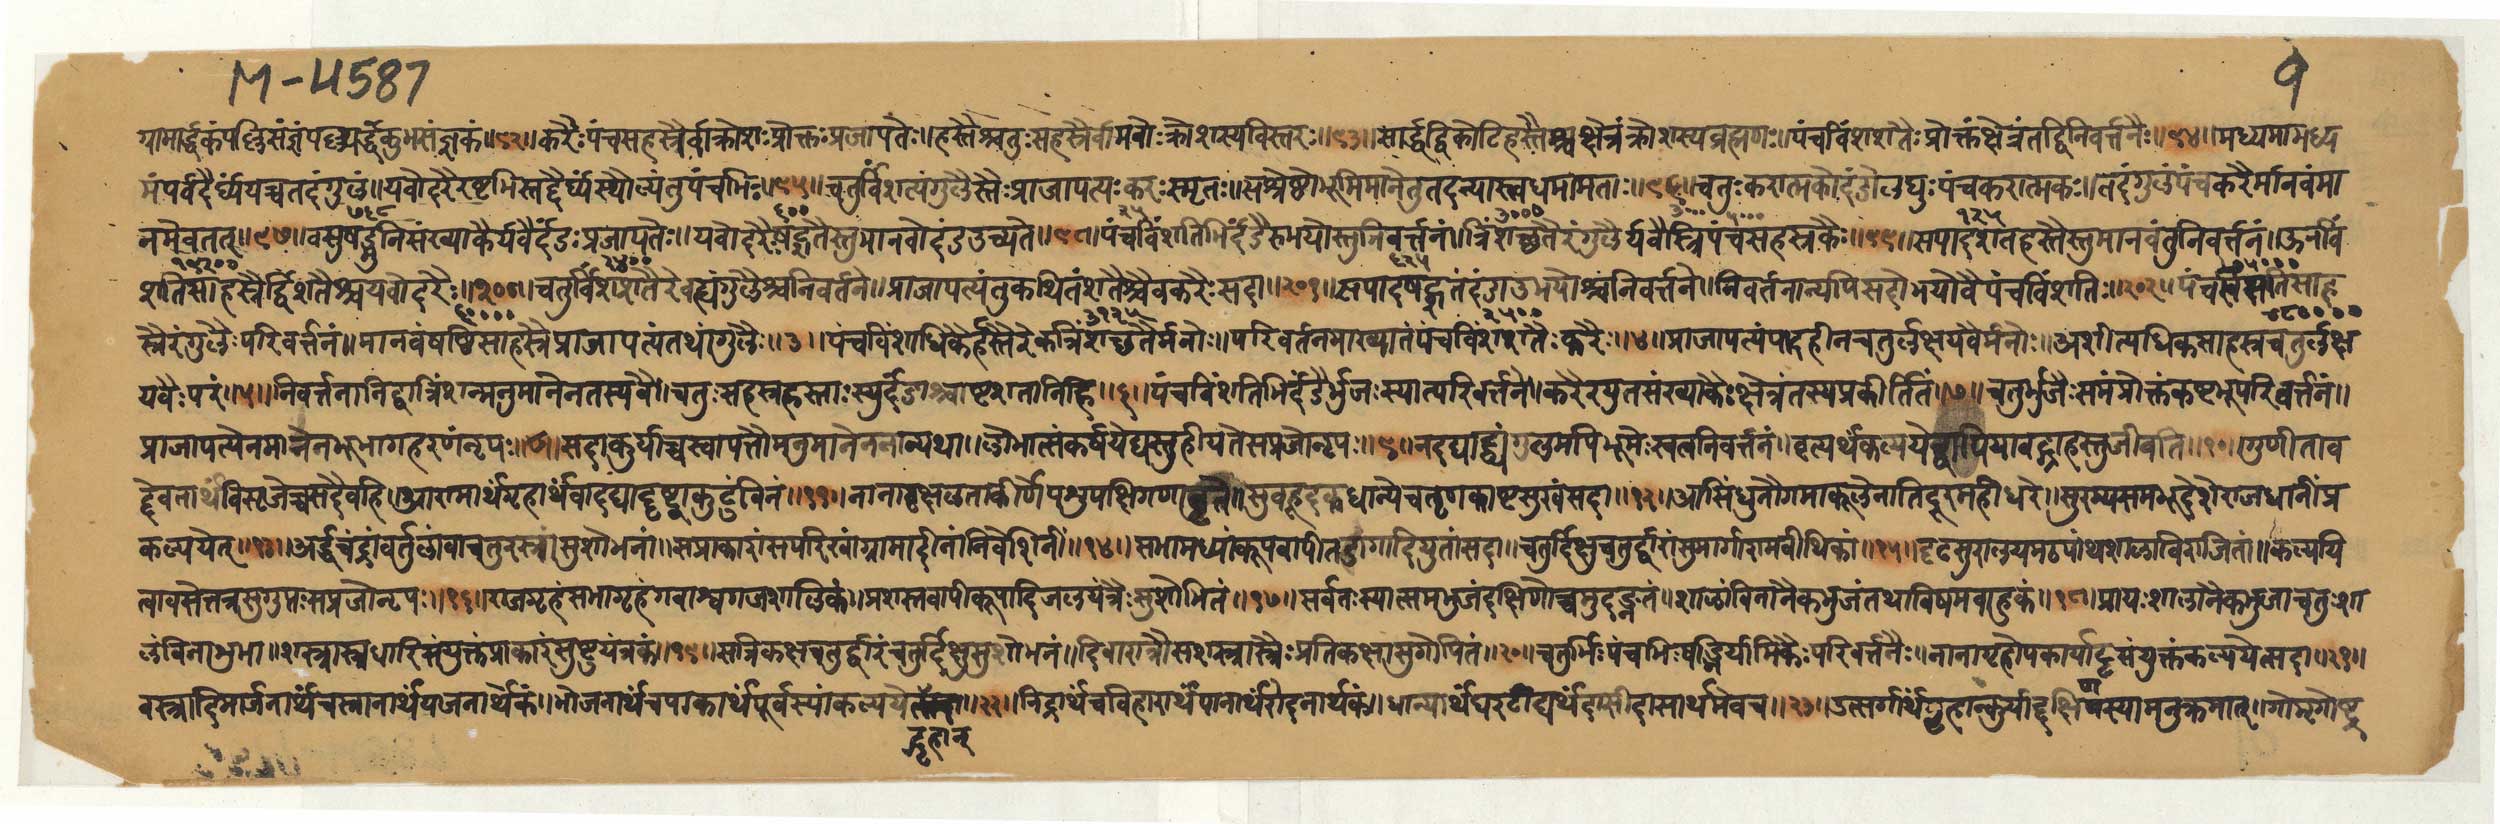 M-4587
१
ग्रामार्द्धकं पल्लिसंज्ञं पल्ल्यर्द्धं कुंभसंज्ञकं॥९२॥करैः पंचसहस्रैर्वा क्रोशः प्रोक्तः प्रजापतेः॥हस्तैश्चतुःसहस्रैर्वा मनोः क्रोशस्य विस्तरः॥९३॥सार्द्धद्विकोटिहस्तैश्च क्षेत्रं क्रोशस्य ब्रह्मणः॥पंचविंशशतैः प्रोक्तं क्षेत्रं तद्विनिवर्त्तनैः॥९४॥मध्यमामध्य
मं पर्वदैर्घ्यं यच्च तदंगुलं॥यवोदरैरष्टभिस्तद्दैर्घ्यं स्थौल्यं तु पंचभिः॥९५॥चतुर्विंशत्यंगुलैस्तैः प्राजापत्यः करः स्मृतः॥सश्रेष्ठो भूमिमाने तु तदन्यास्त्वधमा मताः॥९६॥चतुःकरात्मको दंडो लघुः पंचकरात्मकः॥तदंगुलं पंचकरैर्मानवं मा
नमेव तत्॥९७॥वसुषण्मुनिसंख्याकैर्यवैर्दंडः प्रजापतेः॥यवोदरैः षट्शतैस्तु मानवो दंड उच्यते॥९८॥पंचविंशतिभिर्दंडैरुभयोस्तु निवर्त्तनं॥त्रिंशच्छतैरंगुलैर्यवैस्त्रिपंचसहस्रकैः॥९९॥सपादशतहस्तैस्तु मानवं तु निवर्त्तनं॥ऊनविं
शतिसाहस्रैर्द्विशतैश्च यवोदरैः॥२००॥चतुर्विंशशतैरेव ह्यंगुलैश्च निवर्तनं॥प्राजापत्यं तु कथितं शतैश्चैव करैः सदा॥२०१॥सपादषट्शतं दंडा उभयोश्च निवर्त्तने॥निवर्तनान्यपि सदोभयोर्वै पंचविंशतिः॥२०२॥पंचसप्ततिसाह
स्रैरंगुलैः परिवर्त्तनं॥मानवं षष्टिसाहस्रैः प्राजापत्यं तथांगुलैः॥३॥पंचविंशाधिकैर्हस्तैरेकत्रिंशच्छतैर्मनोः॥परिवर्तनमाख्यातं पंचविंशशतैः करैः॥४॥प्राजापत्यं पादहीनचतुर्लक्षयवैर्मनोः॥अशीत्यधिकसाहस्रचतुर्लक्ष
यवैः परं॥५॥निवर्त्तनानि द्वात्रिंशन्मनुमानेन तस्य वै॥चतुःसहस्रहस्ताः स्युर्दंडाश्चाष्टशतानि हि॥६॥पंचविंशतिभिर्दंडैर्भुजः स्यात्परिवर्त्तने॥करैरयुतसंख्याकैः क्षेत्रं तस्य प्रकीर्तितं॥७॥चतुर्भुजैः समं प्रोक्तं कष्टभूपरिवर्त्तनं॥
प्राजापत्येन मानेन भूभागहरणं नृपः॥८॥सदा कुर्याच्च स्वापत्तौ मनुमानेन नान्यथा॥लोभात्संकर्षयेद्यस्तु हीयते सप्रजो नृपः॥९॥न दद्याद्द्व्यंगुलमपि भूमेः स्वत्वनिवर्त्तनं॥वृत्यर्थं कल्पयेद्वापि यावद्ग्राहस्तु जीवति॥१०॥गुणी ताव
द्देवतार्थं विसृजेच्च सदैव हि॥आरामार्थं गृहार्थं वा दद्याद्दृष्ट्वा कुटुंबिनं॥११॥नानावृक्षलताकीर्णे पशुपक्षिगणावृते॥सुबहूदकधान्ये च तृणकाष्ठसुखे सदा॥१२॥आसिंधुनौगमाकूले नातिदूरमहीधरे॥सुरम्यसमभूदेशे राजधानीं प्र
कल्पयेत्॥१३॥अर्द्धचंद्रां वर्तुलां वा चतुरस्रां सुशोभनां॥सप्राकारां सपरिखां ग्रामादीनां निवेशिनीं॥१४॥सभामध्यां कूपवापीतडागादियुतां सदा॥चतुर्दिक्षु चतुर्द्वारां सुमार्गारामवीथिकां॥१५॥दृढसुरालयमठपांथशालाविराजितां॥कल्पयि
त्वा वसेत्तत्र सुगुप्तः सप्रजो नृपः॥१६॥राजगृहं सभागृहं गवाश्वगजशालिकं॥प्रशस्तवापीकूपादिजलयंत्रैः सुशोभितं॥१७॥सर्वतः स्यात्समभुजं दक्षिणोच्चमुदङ्नतं॥शालां विना नैकभुजं तथा विषमबाहुकं॥१८॥प्रायः शाला नैकभुजा चतुःशा
लं विना शुभा॥शस्त्रास्त्रधारिसंयुक्तं प्राकारं सुष्टुयंत्रकं॥१९॥सत्रिकक्षचतुर्द्वारं चतुर्दिक्षु सुशोभनं॥दिवारात्रौ सशस्त्रास्त्रैः प्रतिकक्षासु गोपितं॥२०॥चतुर्भिः पंचभिः षड्भिर्यामिकैः परिवर्त्तनैः॥नानागृहोपकार्याट्टसंयुक्तं कल्पयेत्सदा॥२१॥
वस्त्रादिमार्जनार्थं च स्नानार्थं यजनार्थकं॥भोजनार्थं च पाकार्थं पूर्वस्यां कल्पये॥२२॥निद्रार्थं च विहारार्थं पानार्थं रोदनार्थकं॥धान्यार्थं घरटाद्यर्थं दासीदासार्थमेव च॥२३॥उत्सर्गार्थं गृहान्कुर्याद्दक्षिणस्यामनुक्रमात्॥गोमृगोष्ट्र
द्गृहान्